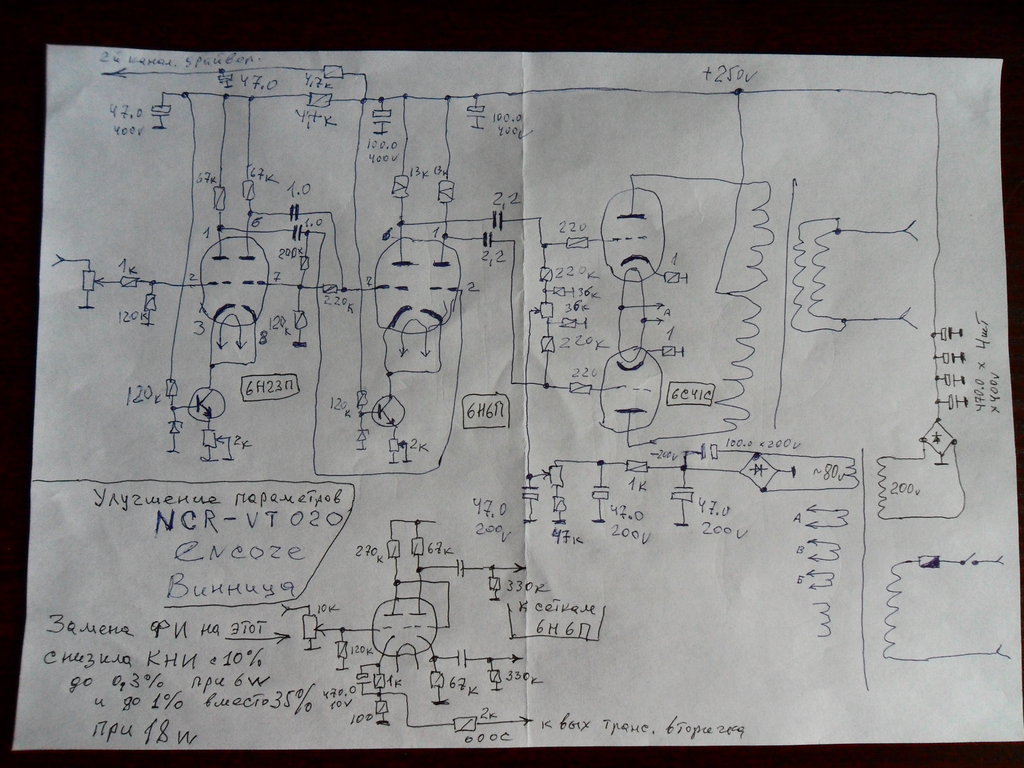 2й канал. драйвер.
47.0
4,7к
4,7к
+250v
47.0
400v
100.0
400v
100.0
400v
67к
67к
1.0
1.0
13к
13к
2,2
2,2
1
6
6
1
1к
2
7
200к
220к
7
2
120к
3
8
120к
220
220к
36к
36к
220к
220
1
A
1
120к
6Н23П
2к
120к
6Н6П
2к
6С41С
470.0 x 400v
4шт
100.0 x 200v
-200v
1к
~80v
200v
47.0
200v
47к
47.0
200v
47.0
200v
A
B
Б
Улучшение параметров
NCR-VT 020
encore
Винница
270к
67к
330к
к сеткам
6Н6П
10к
120к
Замена ФИ на этот
снизила КНИ с 10%
до 0,3% при 6w
и до 1% вместо 35%
при 18w
470.0
10v
1к
100
67к
330к
2к
ООС
к вых транс. вторичка